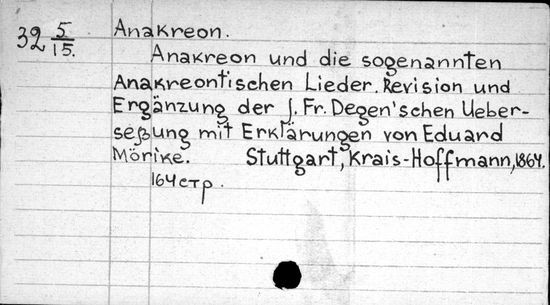 32 5/15.
Anakreon.
Anakreon und die sogenannten
Anakreontischen Lieder. Revision und
Ergänzung der J. Fr. Degen'schen Ueber-
seßung mit Erklärungen von Eduard
Mörike. Stuttgart, Krais-Hoffmann, 1864.
164 стр.